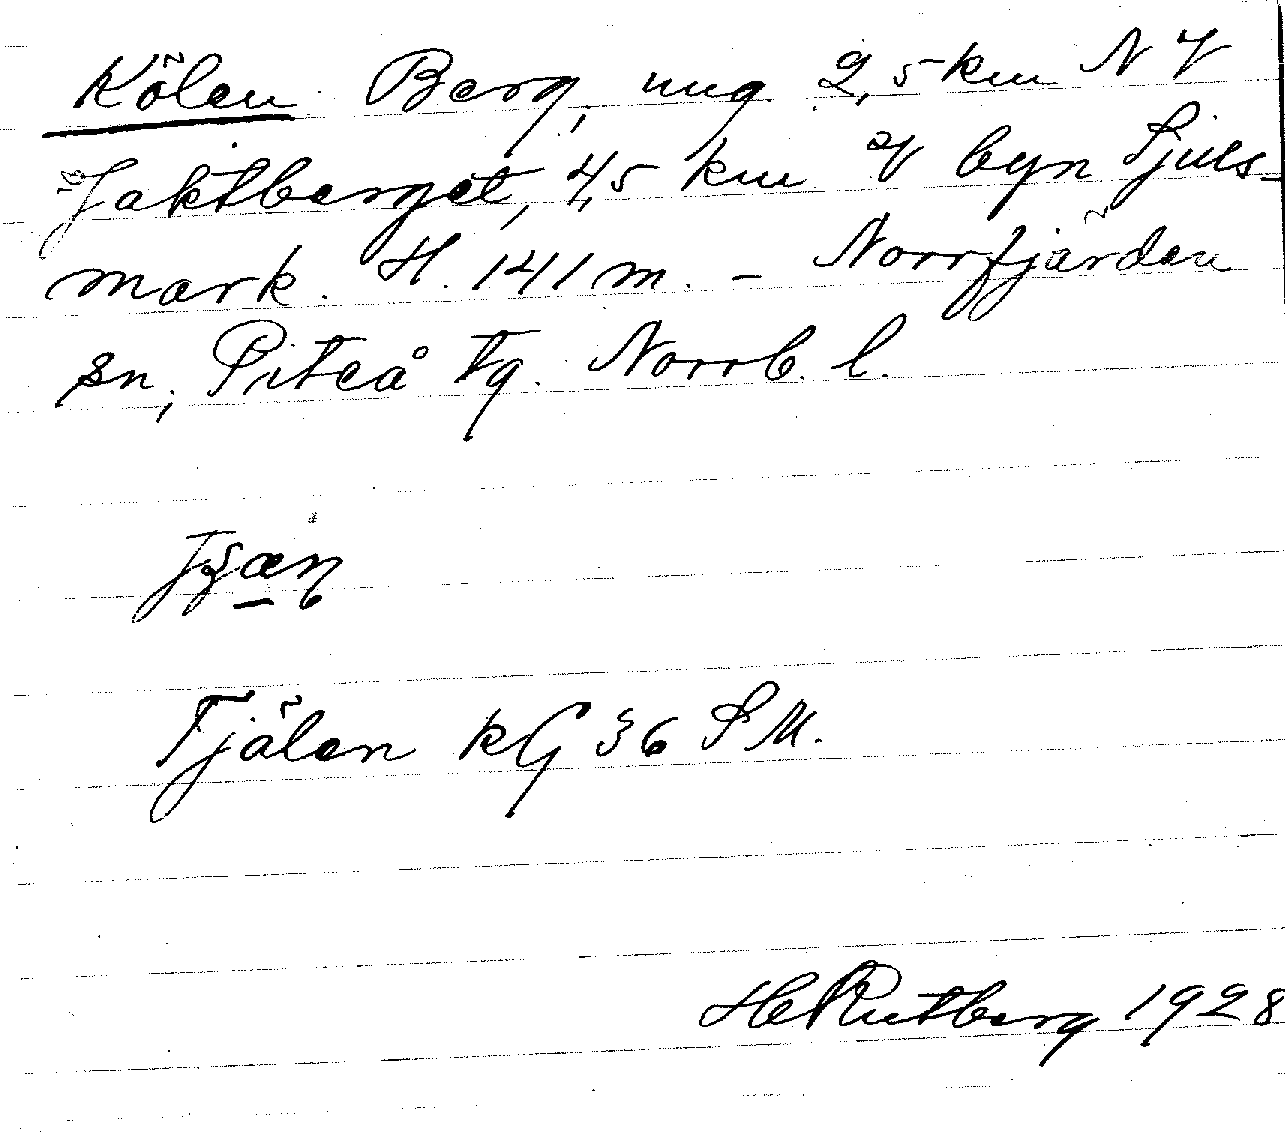 Kölen Berg, ung 2,5 km N V
Jaktberget, 4,5 km V byn Sjuls-
mark. H. 141 m. - Norrfjärden
sn, Piteå tg. Norrb. l.
Tjälen KG 36 S M.
H Rutberg 1928